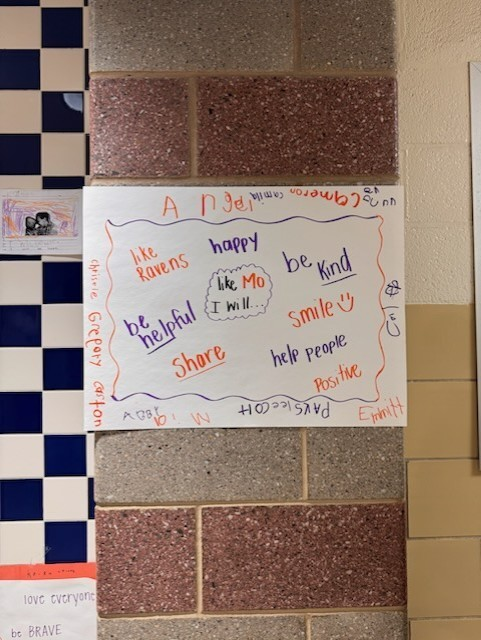 Angel
Camila
Cameron
like
Ravens
happy
be kind
like Mo
I will...
be
helpful
smile
share
help people
Positive
christie Gregory carton
Mia
Emmitt
love everyone
be BRAVE